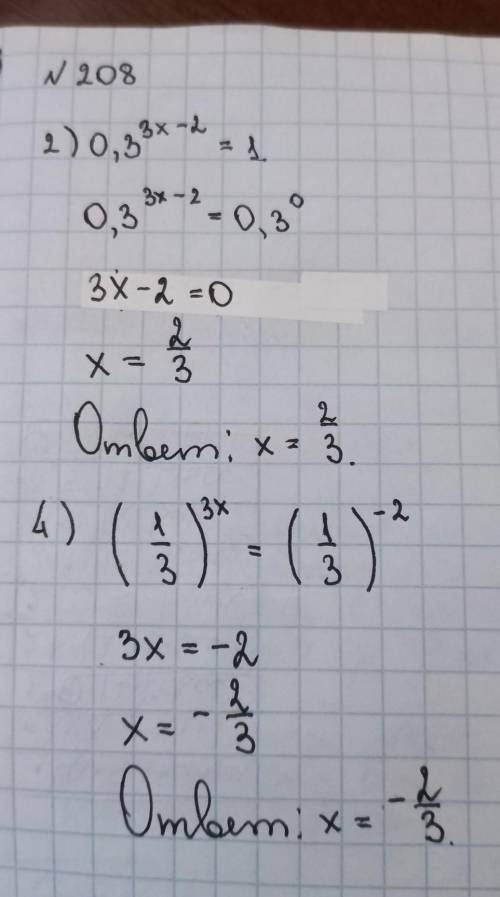 № 208
2) 0,3^(3x-2) = 1.
0,3^(3x-2) = 0,3^0
3x - 2 = 0
x = 2/3
Ответ: x = 2/3.
4) (1/3)^(3x) = (1/3)^(-2)
3x = -2
x = - 2/3
Ответ: x = - 2/3.